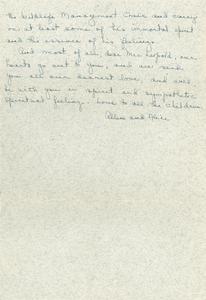 the Wildlife Management Chair and carry
on at least some of his immortal spirit
and the essence of his feelings.
And most of all, dear Mrs. Leopold, our
hearts go out to you, and we send
you all our dearest love, and will
be with you in spirit and sympathetic
spiritual feeling. Love to all the children.
and Alice